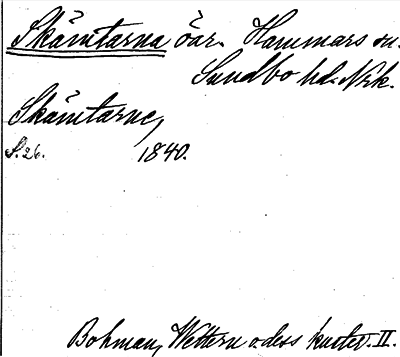 Skämtarna öar. Hammars sn.
Sundbo hd. Nrk.
Skämtarne,
S. 26. 1840.
Bohman, Wettern o. dess kuster. II.